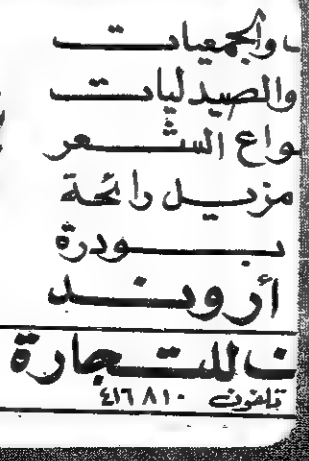 والجمعيات
والصيدليات
ـواع الشعر
مزيل رائحة
بودرة
أروند
ـن للتجارة
تلفون ٤١٦٨١٠